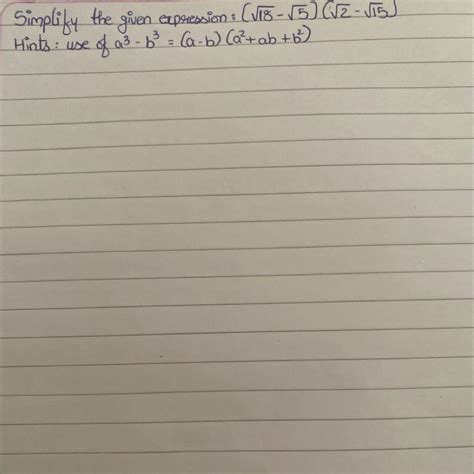 Simplify the given expression: (√18 - √5) (√2 - √15)
Hints: use of a³ - b³ = (a-b) (a²+ab+b²)